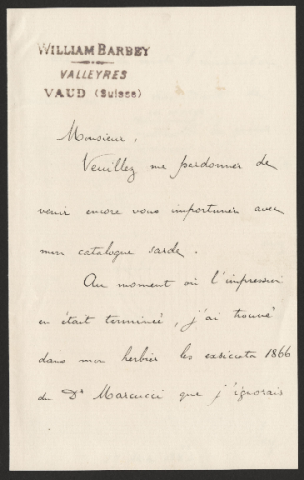 WILLIAM BARBEY
VALLEYRES
VAUD (Suisse)
Monsieur,
Veuillez me pardonner de
venir encore vous importuner avec
mon catalogue sarde.
Au moment où l'impression
en était terminée, j'ai trouvé
dans mon herbier les exsiccata 1866
du Dr Marcucci que j'ignorais